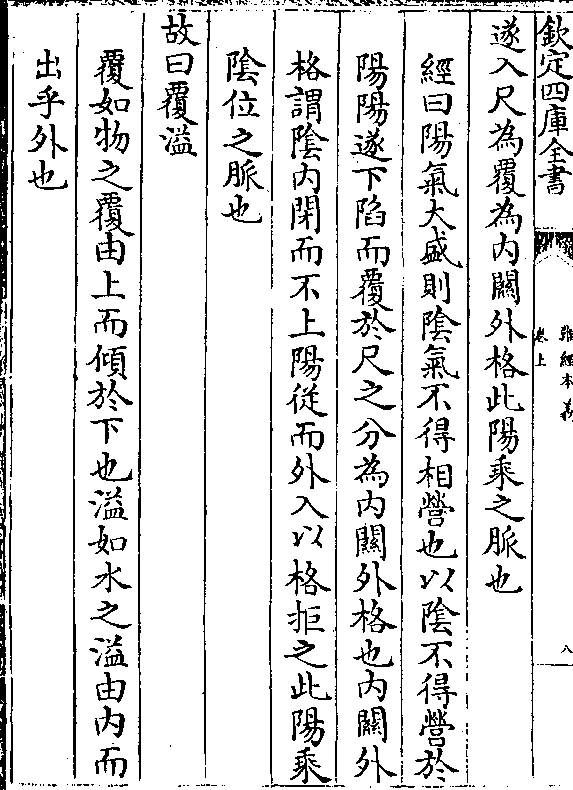 欽定四庫全書
難經本義
卷上
八
遂入尺為覆為內關外格此陽乘之脈也
經曰陽氣大盛則陰氣不得相營也以陰不得營於
陽陽遂下陷而覆於尺之分為內關外格也內關外
格謂陰內閉而不上陽從而外入以格拒之此陽乘
陰位之脈也
故曰覆溢
覆如物之覆由上而傾於下也溢如水之溢由內而
出乎外也